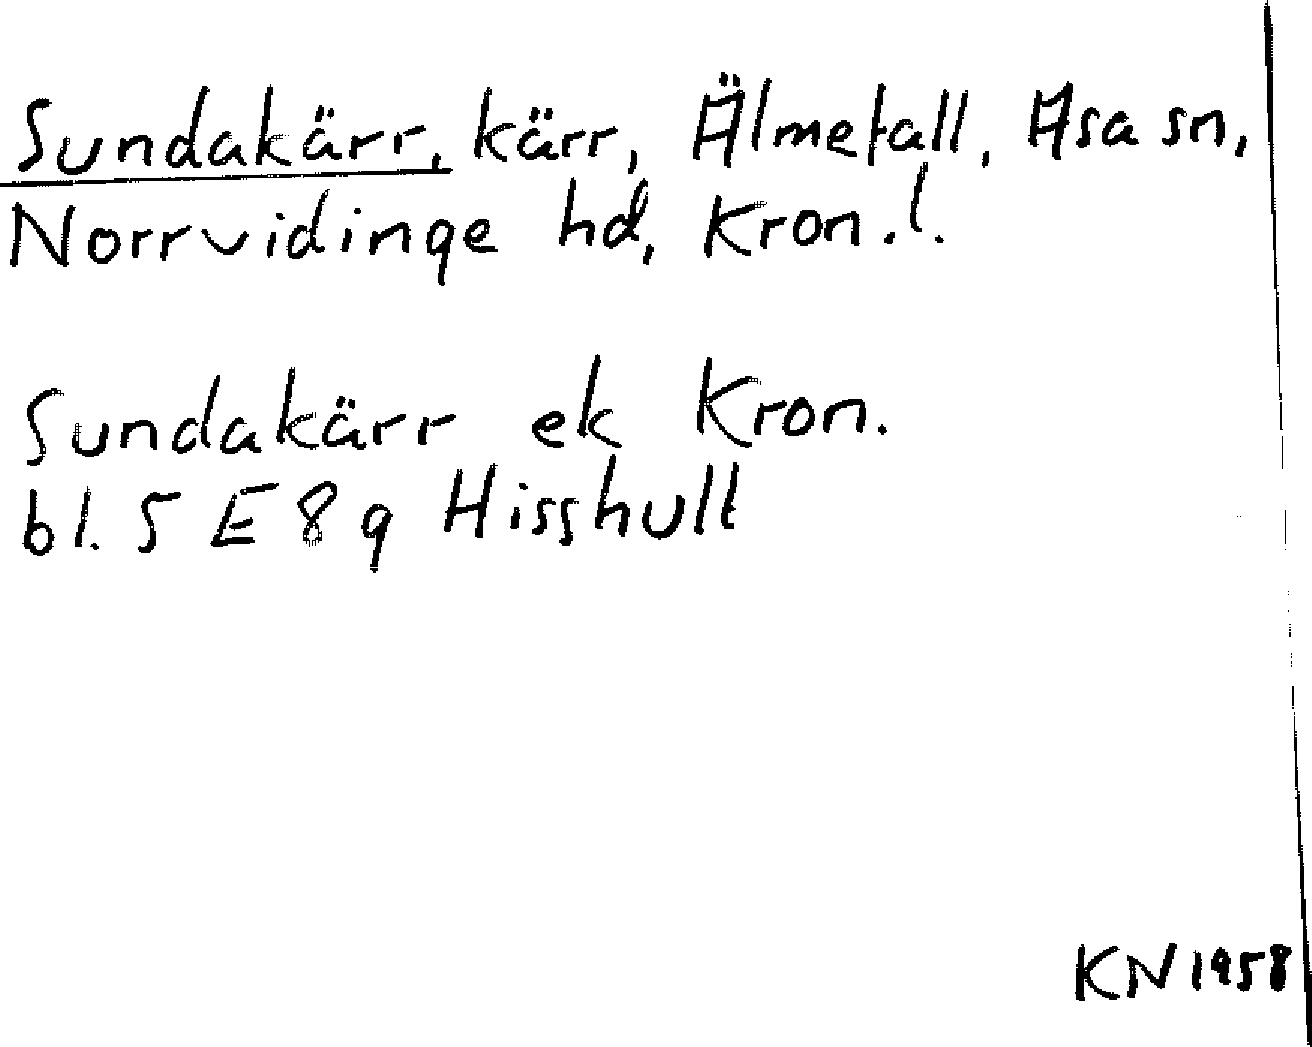 Sundakärr, kärr, Älmetall, Asa sn,
Norrvidinge hd, Kron.l.
Sundakärr ek Kron.
bl. 5 E 8 g Hisshult
KN 1958